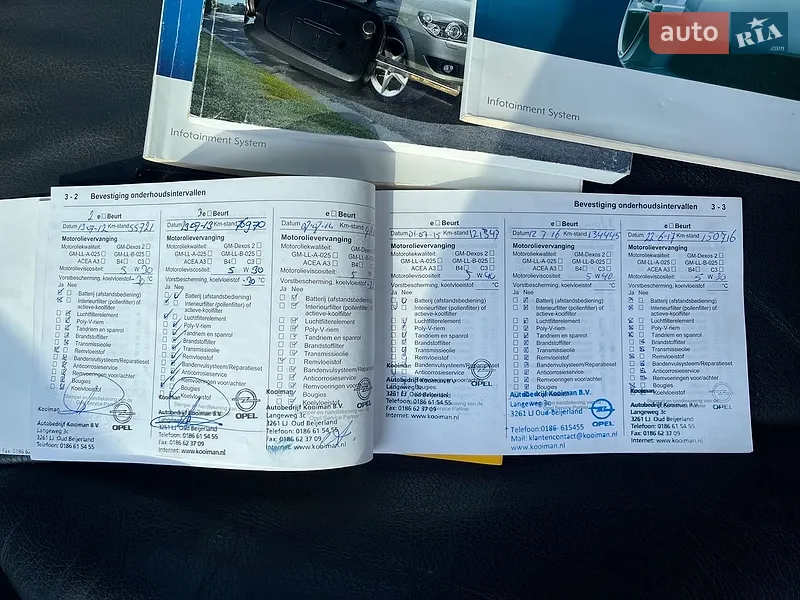 auto RIA .com
Infotainment System
Infotainment System
3 - 2 Bevestiging onderhoudsintervallen
e Beurt
Datum 13-07-12 Km-stand 55721
Motorolievervanging
Motoroliekwaliteit: GM-Dexos 2
GM-LL-A-025 GM-LL-B-025
ACEA A3 B4 C3
Motorolieviscositeit 5 W 30
Vorstbescherming, koelvloeistof -30 °C
Ja Nee
Batterij (afstandsbediening)
Interieurfilter (pollenfilter) of
actieve-koolfilter
Luchtfilterelement
Poly-V-riem
Tandriem en spanrol
Brandstoffilter
Transmissieolie
Remvloeistof
Bandenvulsysteem/Reparatieset
Anticorrosieservice
Remvoeringen voor/achter
Bougies
Koelvloeistof
Kooiman
Autobedrijf Kooiman B.V.
Langeweg 3c
3261 LJ Oud Beijerland
Telefoon: 0186 61 54 55
Fax: 0186 62 37 09
Internet: www.kooiman.nl
OPEL
3e Beurt
Km-stand 76970
Motorolievervanging
Motoroliekwaliteit:
GM-Dexos 2
GM-LL-A-025 GM-LL-B-025
ACEA A3 B4 C3
Motorolieviscositeit 5 W 30
Vorstbescherming, koelvloeistof -30 °C
Ja Nee
Batterij (afstandsbediening)
Interieurfilter (pollenfilter) of
actieve-koolfilter
Luchtfilterelement
Poly-V-riem
Tandriem en spanrol
Brandstoffilter
Transmissieolie
Remvloeistof
Bandenvulsysteem/Reparatieset
Anticorrosieservice
Remvoeringen voor/achter
Bougies
Koelvloeistof
Kooiman
Autobedrijf Kooiman B.V.
3261 LJ Oud Beijerland
Telefoon: 0186 61 54 55
Fax: 0186 62 37 09
Internet: www.kooiman.nl
OPEL
e Beurt
Datum
Km-stand
Motorolievervanging
Motoroliekwaliteit:
GM-LL-A-025
ACEA A3
Motorolieviscositeit 5
Vorstbescherming, koelvloeistof
Ja Nee
Batterij (afstandsbediening)
Interieurfilter (pollenfilter)
actieve-koolfilter
Luchtfilterelement
Poly-V-riem
Tandriem en spanrol
Brandstoffilter
Transmissieolie
Remvloeistof
Bandenvulsysteem
Anticorrosieservice
Remvoeringen voor/achter
Bougies
Koelvloeistof
Kooiman
Autobedrijf Kooiman B.V.
Langeweg 3c
3261 LJ Oud Beijerland
Telefoon: 0186 61 54 55
Fax: 0186 62 37 09
Internet: www.kooiman.nl
Bevestiging onderhoudsintervallen 3 - 3
e Beurt
Km-stand 121343
Motorolievervanging
Motoroliekwaliteit:
GM-Dexos 2
GM-LL-A-025 GM-LL-B-025
ACEA A3 B4 C3
Motorolieviscositeit
Vorstbescherming, koelvloeistof °C
Ja Nee
Batterij (afstandsbediening)
Interieurfilter (pollenfilter) of
actieve-koolfilter
Luchtfilterelement
Poly-V-riem
Tandriem en spanrol
Brandstoffilter
Transmissieolie
Remvloeistof
Bandenvulsysteem/Reparatieset
Anticorrosieservice
Autobedrijf Kooiman B.V.
Langeweg 3c
3261 LJ Oud Beijerland
Telefoon: 0186 61 54 55
Fax: 0186 62 37 09
Internet: www.kooiman.nl
OPEL
e Beurt
Datum 12 7 16 Km-stand 134445
Motorolievervanging
Motoroliekwaliteit:
GM-Dexos 2
GM-LL-A-025 GM-LL-B-025
ACEA A3 B4 C3
Motorolieviscositeit 5 W 40
Vorstbescherming, koelvloeistof °C
Ja Nee
Batterij (afstandsbediening)
Interieurfilter (pollenfilter) of
actieve-koolfilter
Luchtfilterelement
Poly-V-riem
Tandriem en spanrol
Brandstoffilter
Transmissieolie
Remvloeistof
Bandenvulsysteem/Reparatieset
Anticorrosieservice
Remvoeringen voor/achter
Bougies
Autobedrijf Kooiman B.V.
Langeweg 3c
3261 LJ Oud Beijerland
Telefoon: 0186- 615455
Mail: klantencontact@kooiman.nl
www.kooiman.nl
OPEL
e Beurt
Datum 22-6-17 Km-stand 150716
Motorolievervanging
Motoroliekwaliteit:
GM-Dexos 2
GM-LL-A-025 GM-LL-B-025
ACEA A3 B4 C3
Motorolieviscositeit 5 W 30
Vorstbescherming, koelvloeistof °C
Ja Nee
Batterij (afstandsbediening)
Interieurfilter (pollenfilter) of
actieve-koolfilter
Luchtfilterelement
Poly-V-riem
Tandriem en spanrol
Brandstoffilter
Transmissieolie
Remvloeistof
Bandenvulsysteem/Reparatieset
Anticorrosieservice
Remvoeringen voor/achter
Bougies
Kooiman
Autobedrijf Kooiman B.V.
Langeweg 3c
3261 LJ Oud Beijerland
Telefoon: 0186 61 54 55
Fax: 0186 62 37 09
Internet: www.kooiman.nl
OPEL